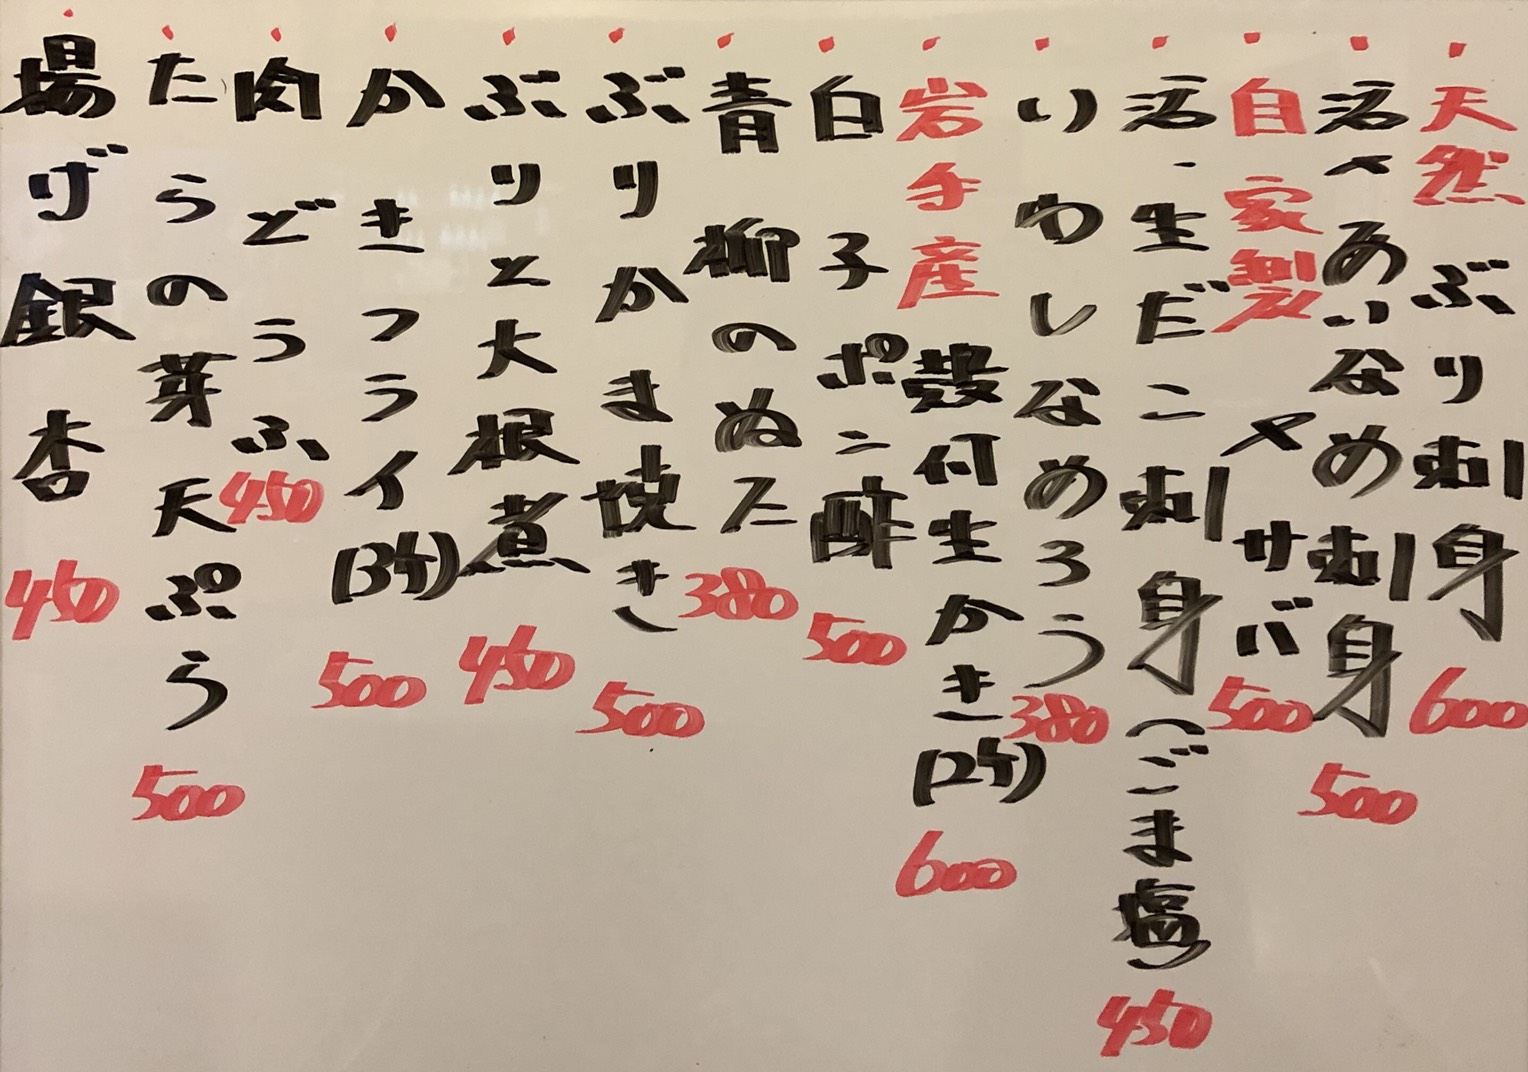 天然ぶり刺身 600
活〆あいなめ刺身 500
自家製〆サバ 500
活・生だこ刺身(ごま塩) 450
いわしなめろう 380
岩手産殻付生かき(2ケ) 600
白子ポン酢 500
青柳のぬた 380
ぶりかま焼き 500
ぶりと大根煮 450
かきフライ(3ケ) 500
肉どうふ 450
たらの芽天ぷら 500
揚げ銀杏 450